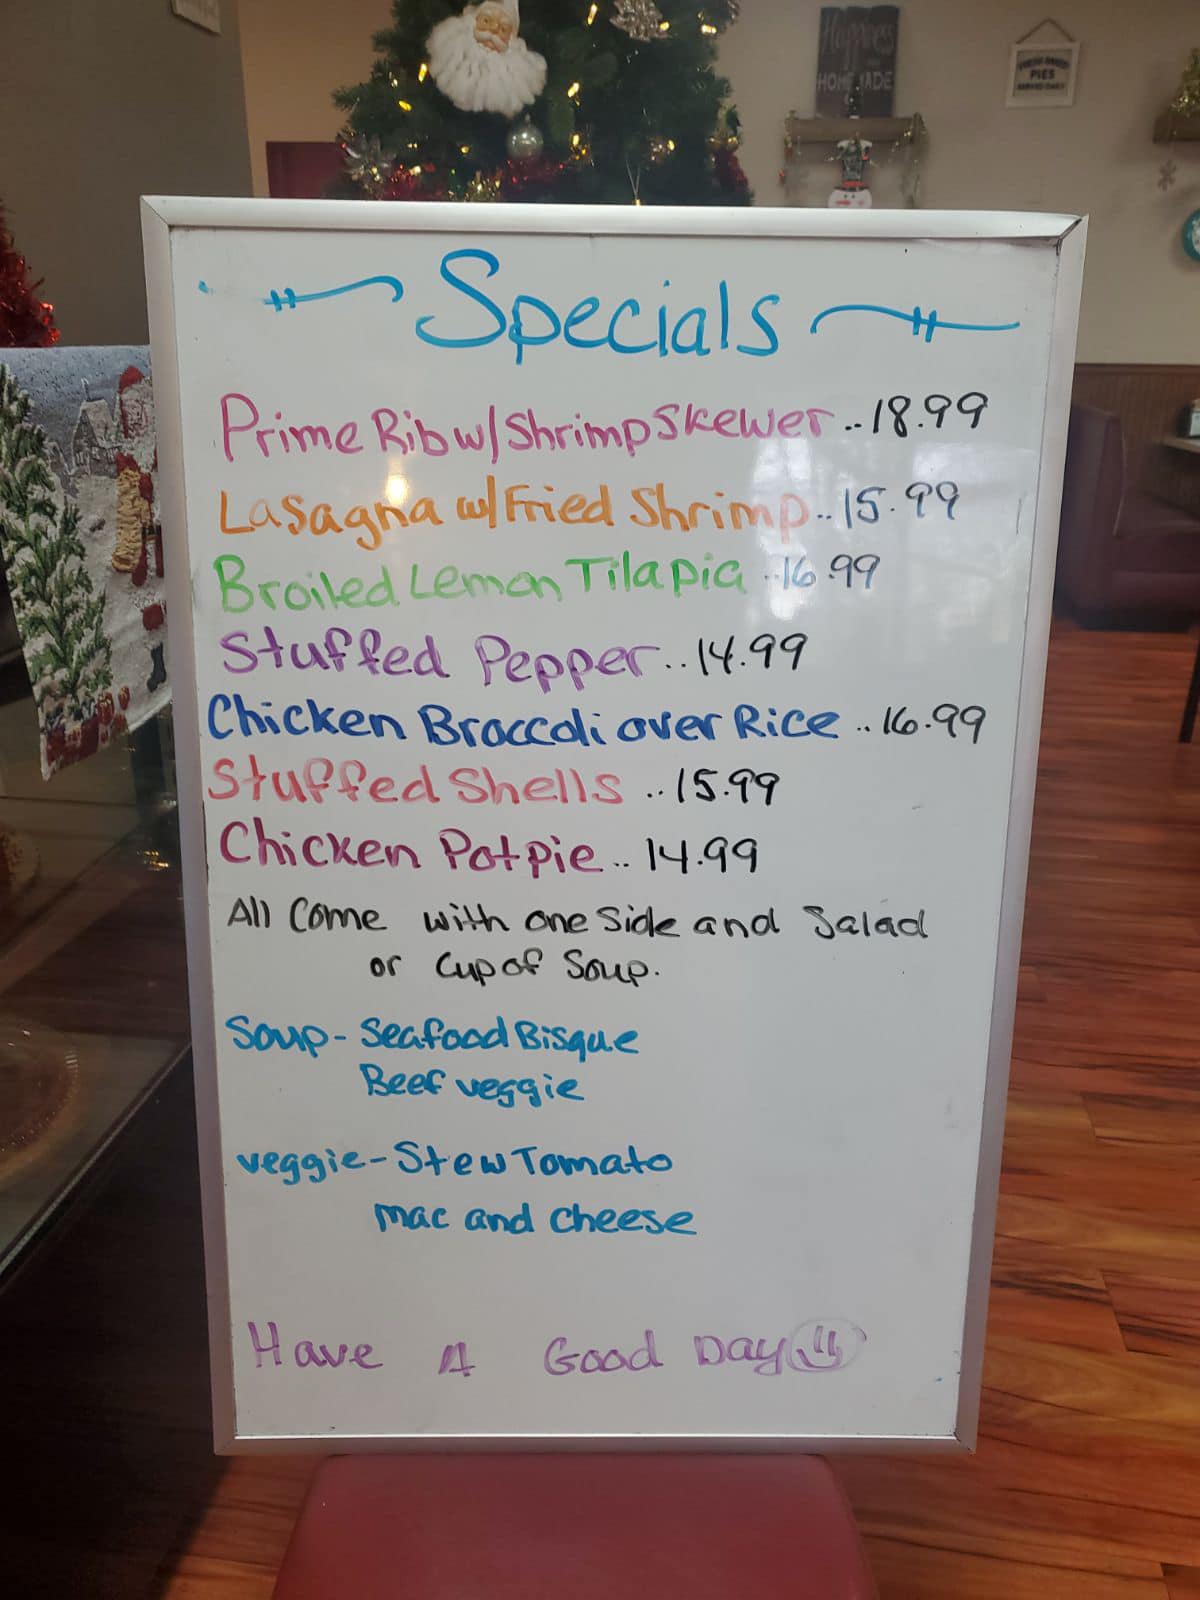 Happiness
HOMEMADE
FRESH BAKED
PIES
SERVED DAILY
Specials
Prime Rib w/ Shrimp Skewer .. 18.99
Lasagna w/ Fried Shrimp .. 15.99
Broiled Lemon Tilapia .. 16.99
Stuffed Pepper .. 14.99
Chicken Broccoli over Rice .. 16.99
Stuffed Shells .. 15.99
Chicken Potpie .. 14.99
All Come with one Side and Salad
or Cup of Soup.
Soup - Seafood Bisque
Beef veggie
veggie - Stew Tomato
mac and cheese
Have A Good Day